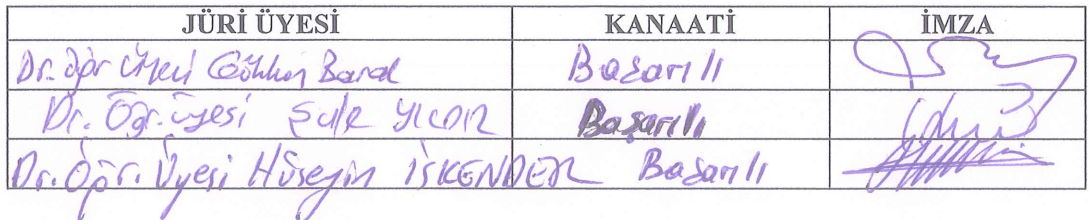 JÜRİ ÜYESİ KANAATİ İMZA
Dr. Öğr Üyesi Gökhan Baral Başarılı
Dr. Öğr. Üyesi Şule Başarılı
Dr. Öğr. Üyesi Hüseyin İSKENDER Başarılı